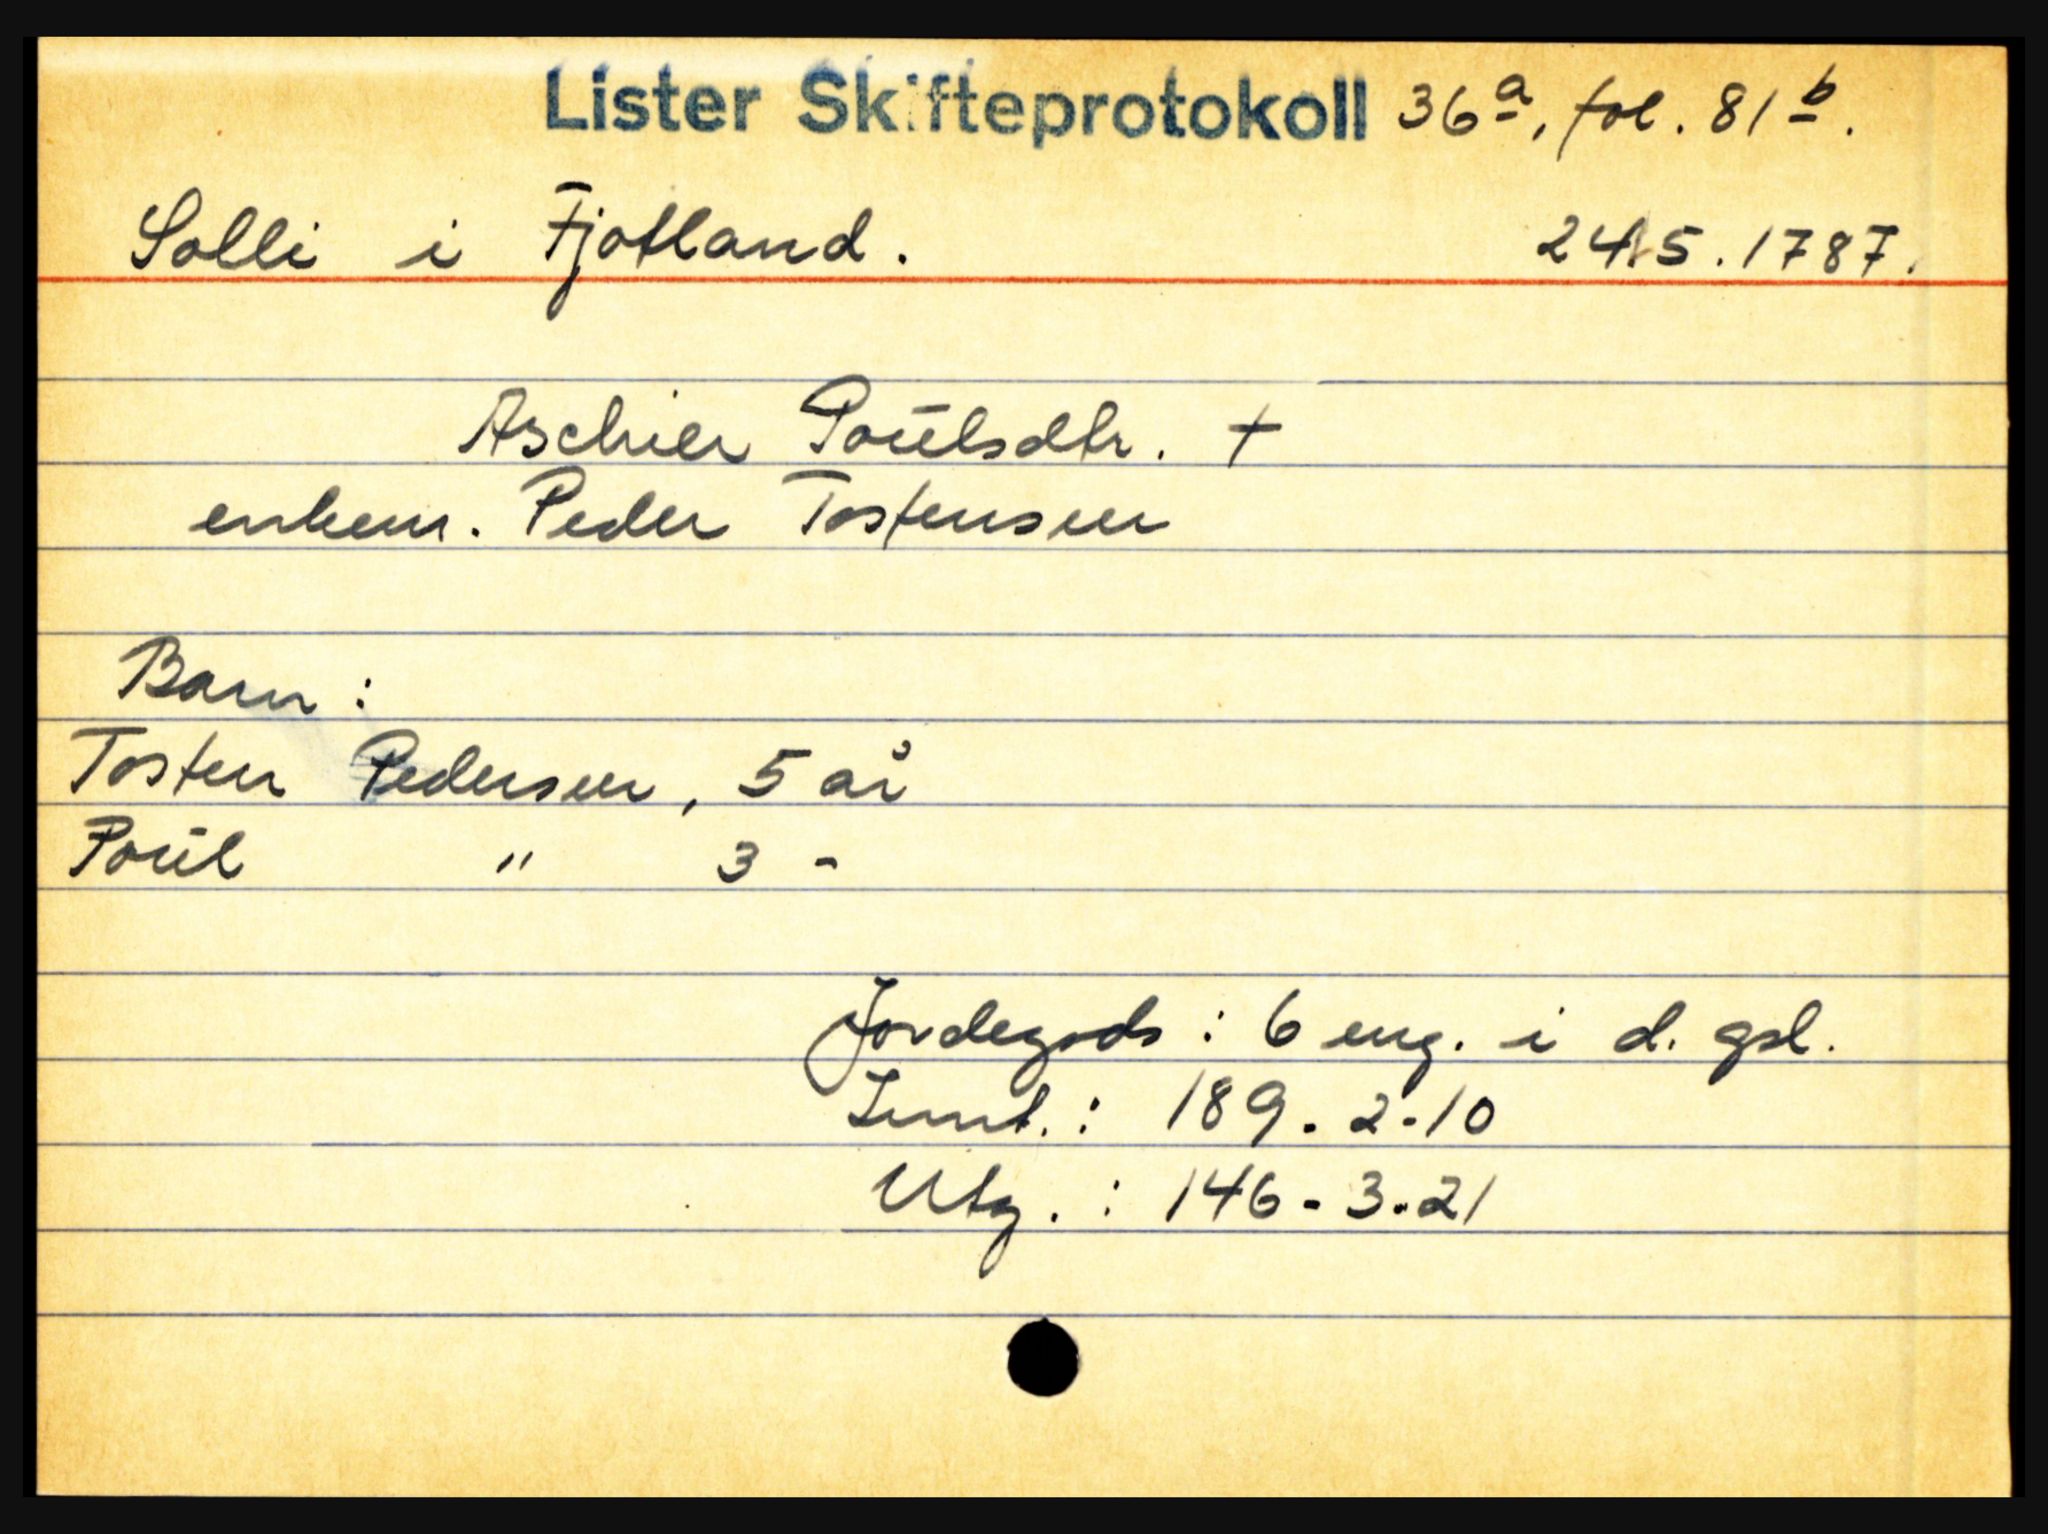 Lister Skifteprotokoll 36a, fol. 81b.
Solli i Fjotland. 24.5.1787.
Aschier Poülsdtr. +
enkem. Peder Tostensen
Barn:
Tosten Pedersen, 5 år
Poül " 3 -
Jordegods: 6 eng. i d. gsl.
Innt.: 189. 2-10
Utg.: 146-3-21